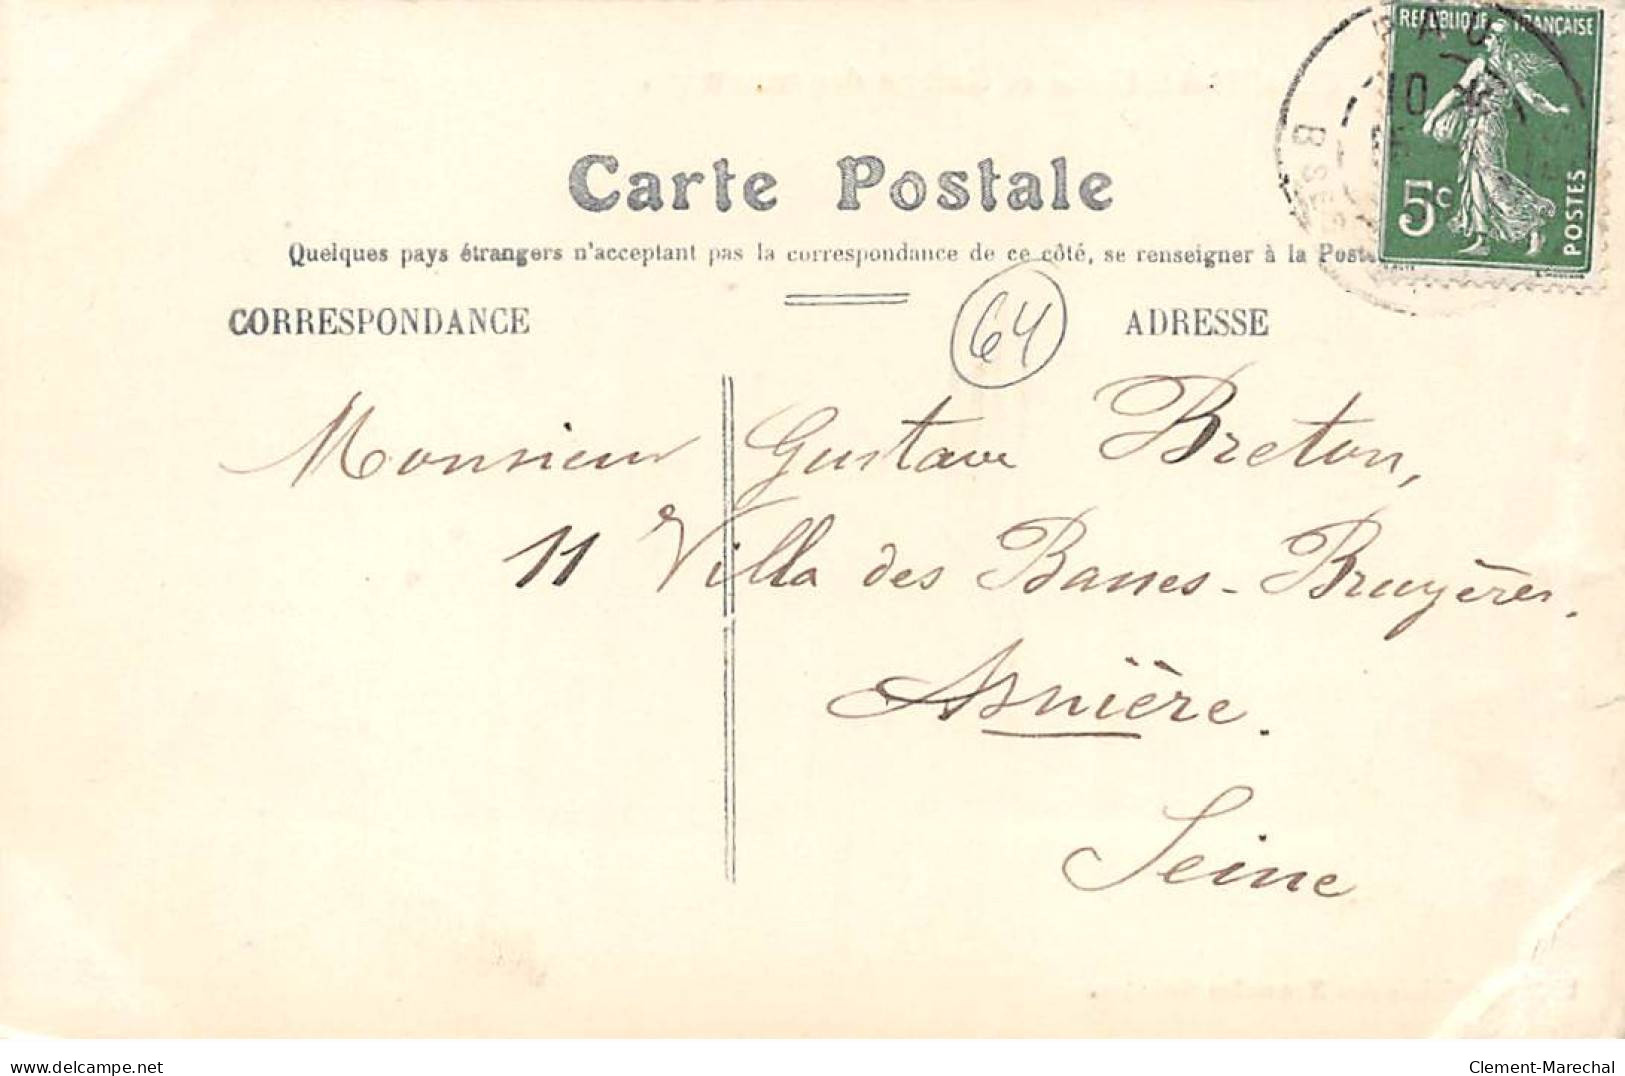 RÉPUBLIQUE FRANÇAISE
PAU
10
5c
POSTES
Carte Postale
Quelques pays étrangers n'acceptant pas la correspondance de ce côté, se renseigner à la Poste
CORRESPONDANCE
64
ADRESSE
Monsieur Gustave Breton,
11 Villa des Basses-Bruyères.
Asnière.
Seine
www.delcampe.net
Clement-Marechal